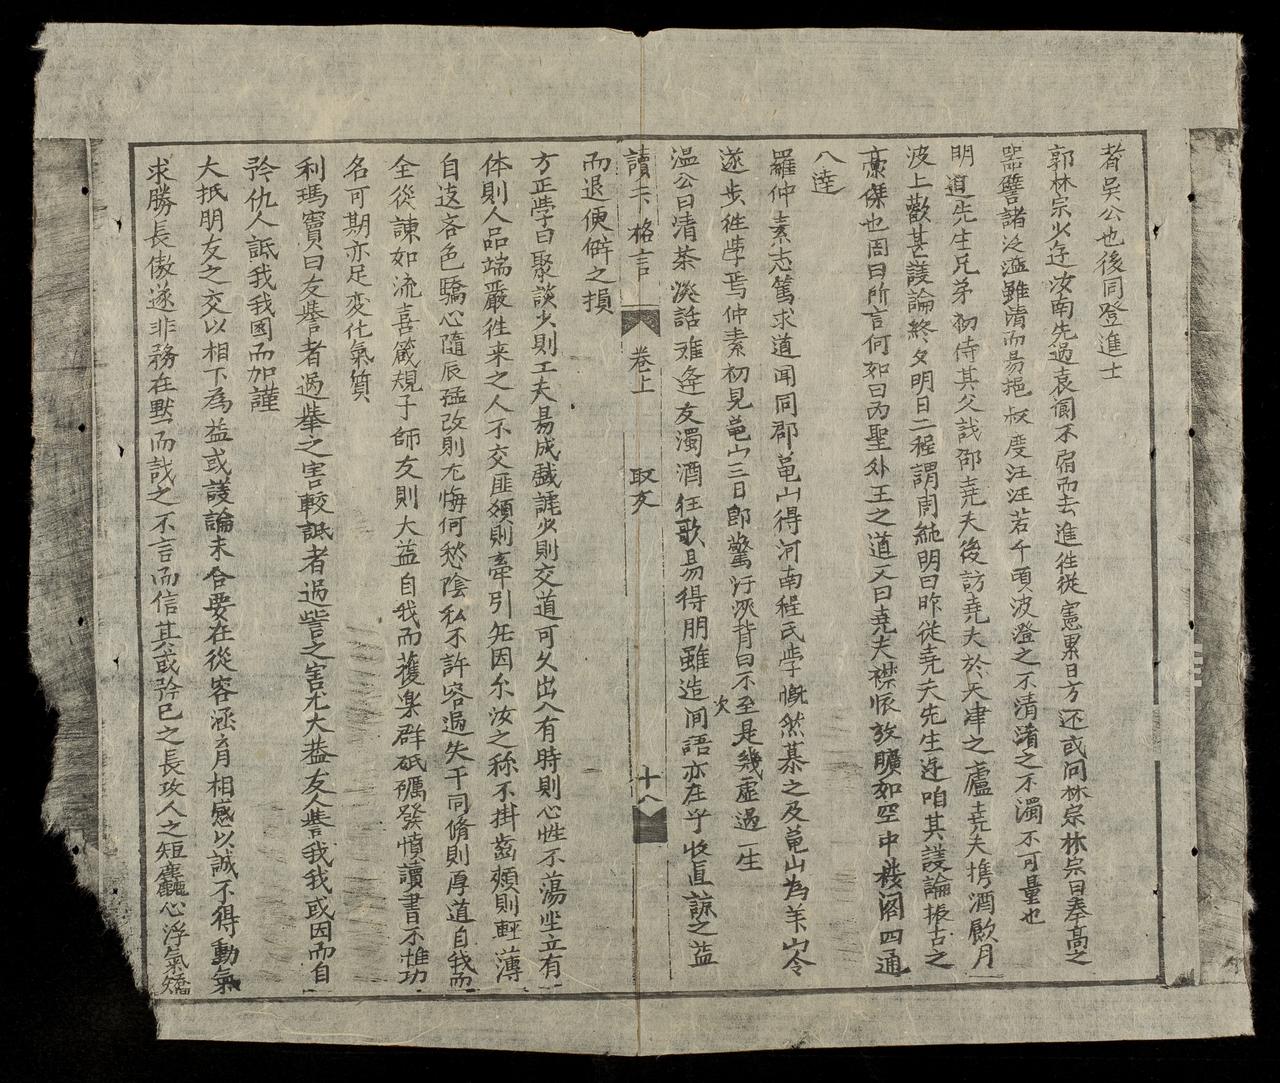 者吳公也後同登進士
郭林宗少遊汝南先過袁閬不宿而去進徃從憲累日方还或问林宗林宗曰奉高之
器譬諸泛濫雖清而易挹叔度汪汪若千頃波澄之不清淆之不濁不可量也
明道先生兄弟初侍其父訪邵尭夫後訪尭夫於天津之廬尭夫携酒飮月
波上歡甚議論終夕明日二程謂周純明曰昨從尭夫先生逰咱其議論振古之
豪傑也周曰所言何如曰內聖外王之道又曰尭夫襟懷放曠如空中棧阁四通
八逹
羅仲素志篤求道闻同郡亀山得河南程氏學慨然慕之及亀山為羊山令
遂步徃學焉仲素初見亀山三日即驚汙浹背曰不至是幾虛過一生
次
温公曰清茶淡話难逢友濁酒狂歌易得朋雖造间語亦在乎收直諒之益
讀卡格言 卷上 取友 十八
而退便僻之損
方正學曰聚談少則工夫易成戱謔少則交道可久出入有時則心性不蕩坐立有
体則人品端嚴徃来之人不交匪類則牽引無因尓汝之称不掛齒頰則輕薄
自逺吝色驕心隨辰猛改則尤悔何愁陰私不許容過失干同脩則厚道自我而
全從諫如流喜箴規子師友則大益自我而獲樂群砥礪發憤讀書不惟功
名可期亦足変化氣質
利瑪竇曰友譽者過舉之害較詆者過訾之害尤大益友人譽我我或因而自
矜仇人詆我我囯而加謹
大抵朋友之交以相下為益或議論未合要在從容涵育相感以誠不得動氣
求勝長傲遂非務在默而識之不言而信其或矜已之長攻人之短麤心浮氣矯